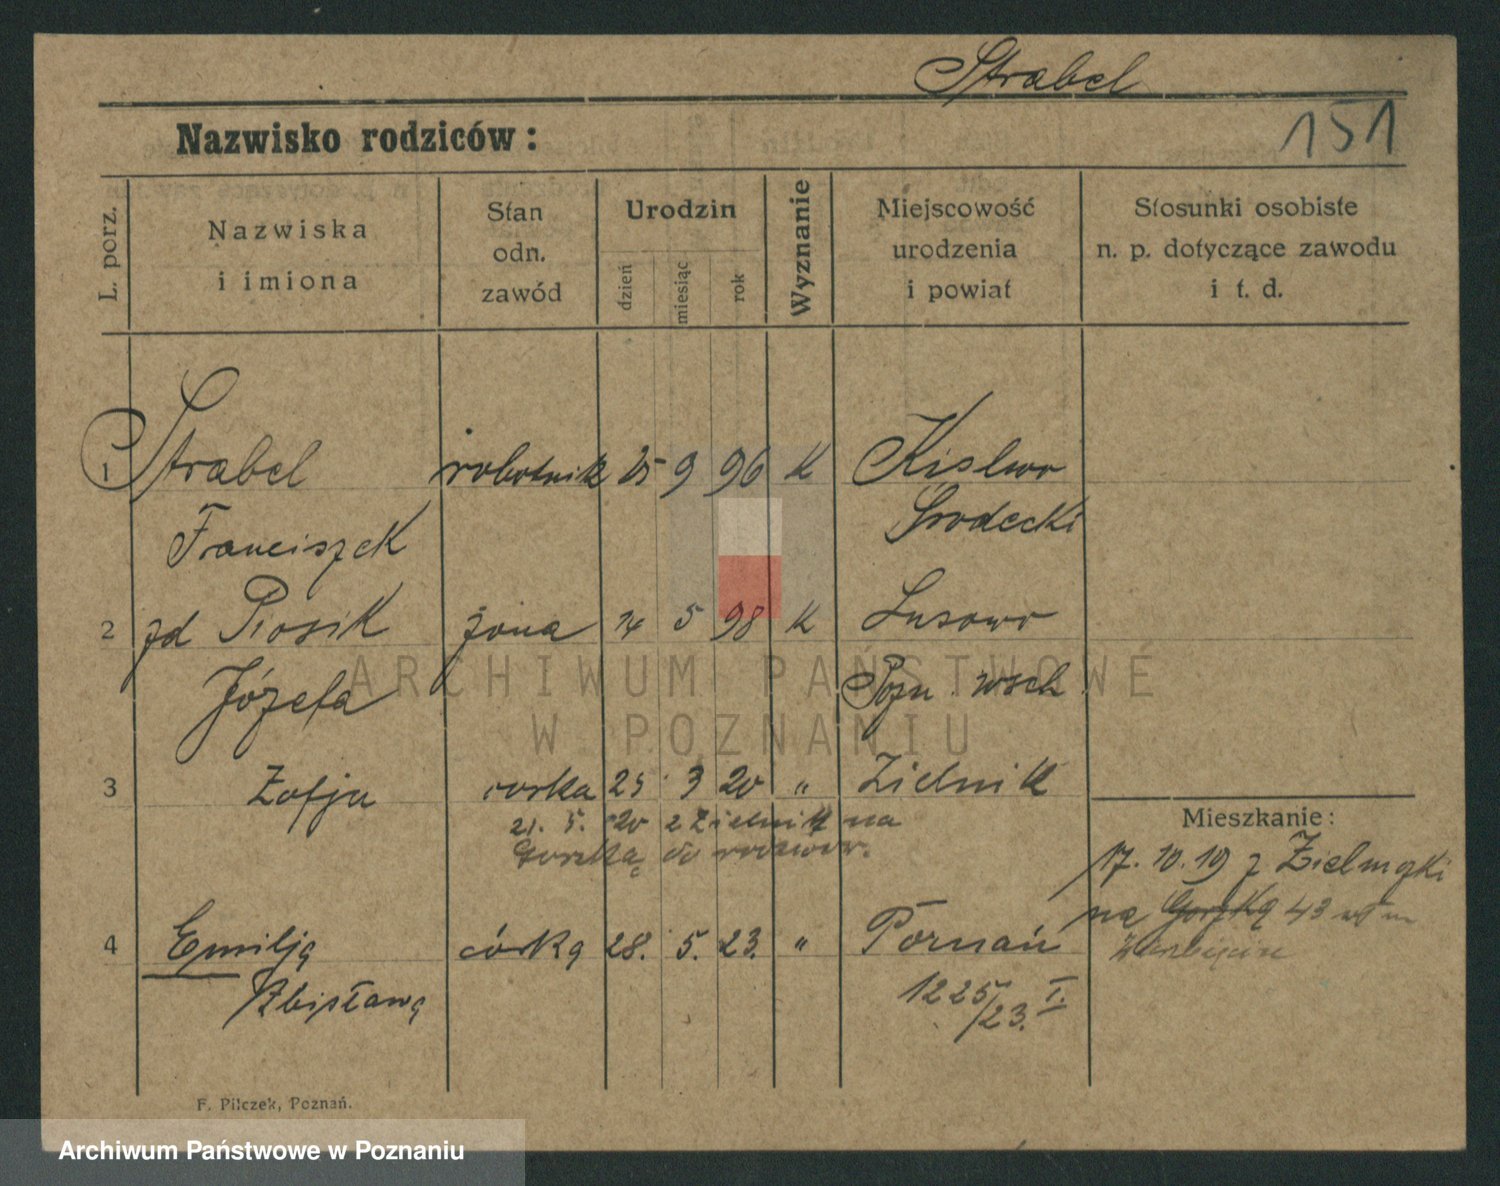 Strabel
151
Nazwisko rodziców:
L. porz.
Nazwiska
i imiona
Stan
odn.
zawód
Urodzin
dzień
miesiąc
rok
Wyznanie
Miejscowość
urodzenia
i powiat
Stosunki osobiste
n. p. dotyczące zawodu
i t. d.
1 Strabel robotnik 25 9 96 K
Franciszek Srodecki
2 zd Piosik żona 14 5 98 K Lusowo
Józefa Pozn. wsch
3 Zofja corka 25 3 20 " Zielnik
21. 5. 20 z Zielnik na
Mieszkanie:
17. 10. 19 z
na 43
4 Emilja córka 28. 5. 23. " Poznań
1225/23. I.
ARCHIWUM PAŃSTWOWE
W POZNANIU
F. Pilczek, Poznań.
Archiwum Państwowe w Poznaniu